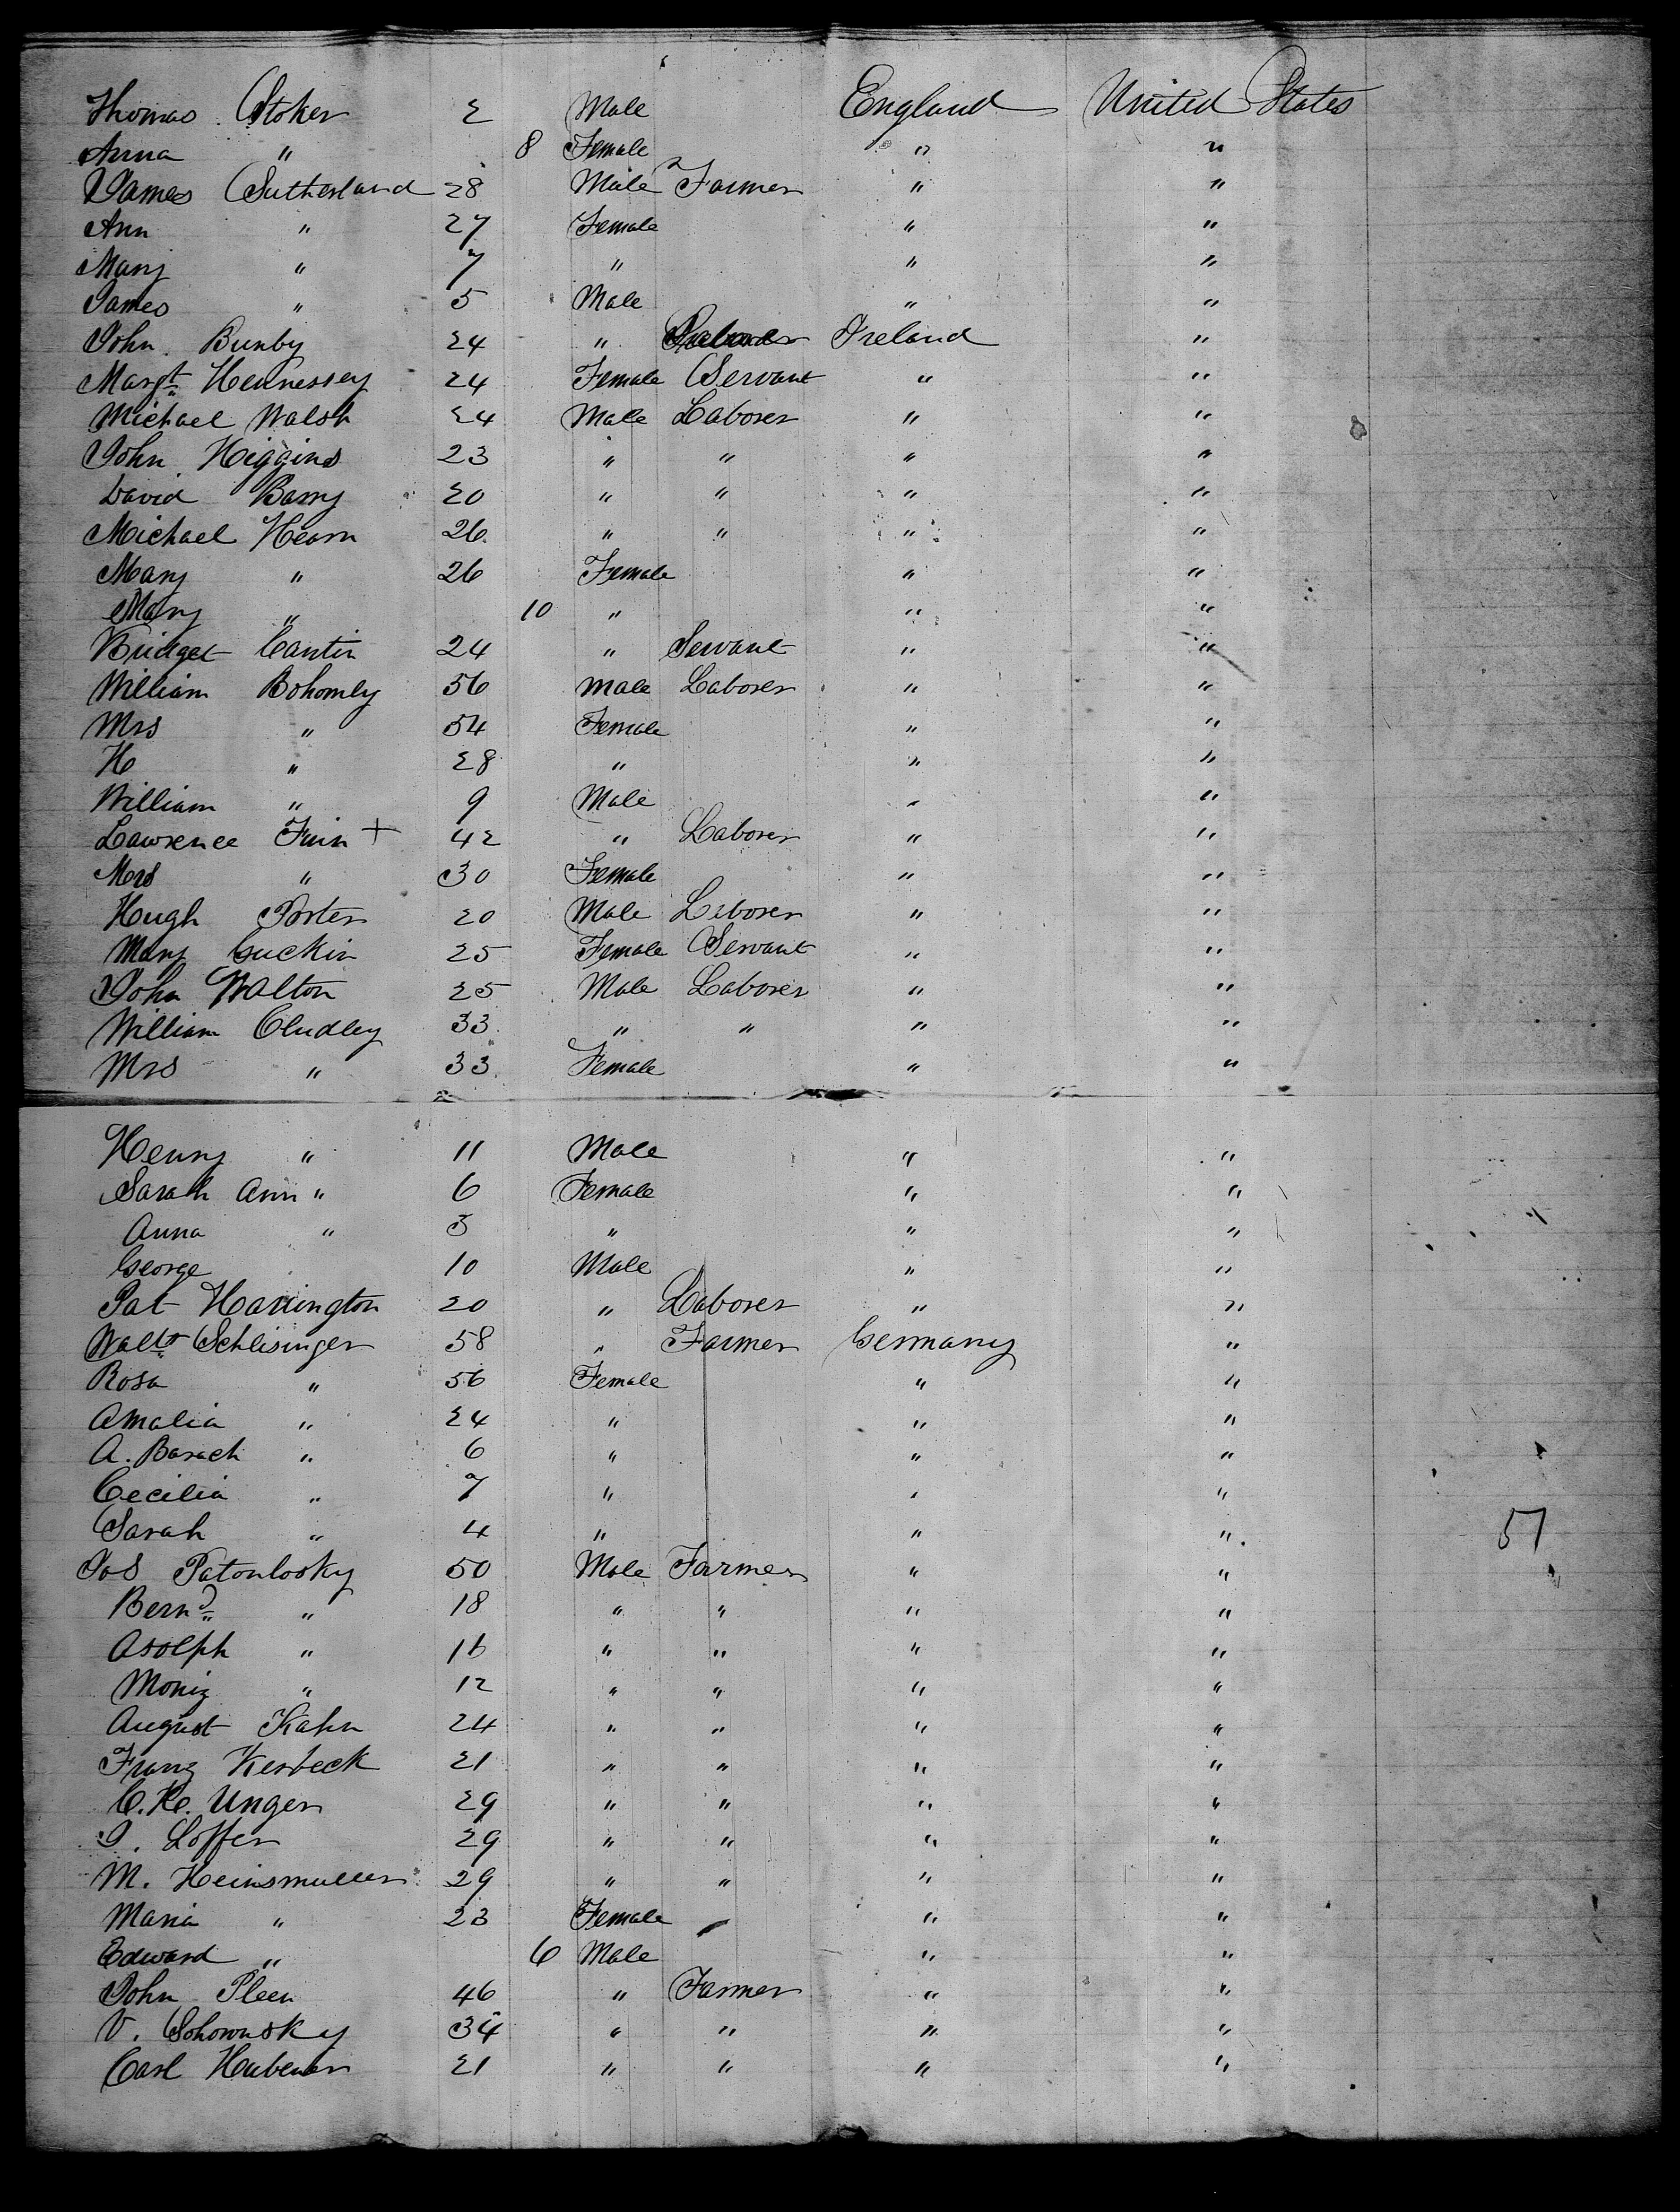 Thomas Stoker 2 Male England United States
Anna " 8 Female " "
James Sutherland 28 Male Farmer " "
Ann " 27 Female " "
Mary " 7 " " "
James " 5 Male " "
John Bunby 24 " Laborer Ireland "
Margt Hennessey 24 Female Servant " "
Michael Walsh 24 Male Laborer " "
John Higgins 23 " " " "
David Barry 20 " " " "
Michael Hearn 26 " " " "
Mary " 26 Female " "
Mary " 10 " " "
Bridget Cantin 24 " Servant " "
William Bohomly 56 Male Laborer " "
Mrs " 54 Female " "
H " 28 " " "
William " 9 Male " "
Lawrence Finn + 42 " Laborer " "
Mrs " 30 Female " "
Hugh Porter 20 Male Laborer " "
Mary Guckin 25 Female Servant " "
John Walton 25 Male Laborer " "
William Cludley 33 " " " "
Mrs " 33 Female " "
Henry " 11 Male " "
Sarah Ann " 6 Female " "
Anna " 3 " " "
George 10 Male " "
Pat Harrington 20 " Laborer " "
Walt Schlisinger 58 " Farmer Germany "
Rosa " 56 Female " "
Amalia " 24 " " "
A. Barach " 6 " " "
Cecilia " 7 " " "
Sarah " 4 " " " 57
Jos Patonlosky 50 Male Farmer " "
Bernd " 18 " " " "
Adolph " 16 " " " "
Moriz " 12 " " " "
August Kahn 24 " " " "
Franz Kesbeck 21 " " " "
C. H. Unger 29 " " " "
J. Loffer 29 " " " "
M. Heinsmuller 29 " " " "
Maria " 23 Female " "
Edward " 6 Male " "
John Pleen 46 " Farmer " "
V. Sohownsky 34 " " " "
Carl Hubener 21 " " " "